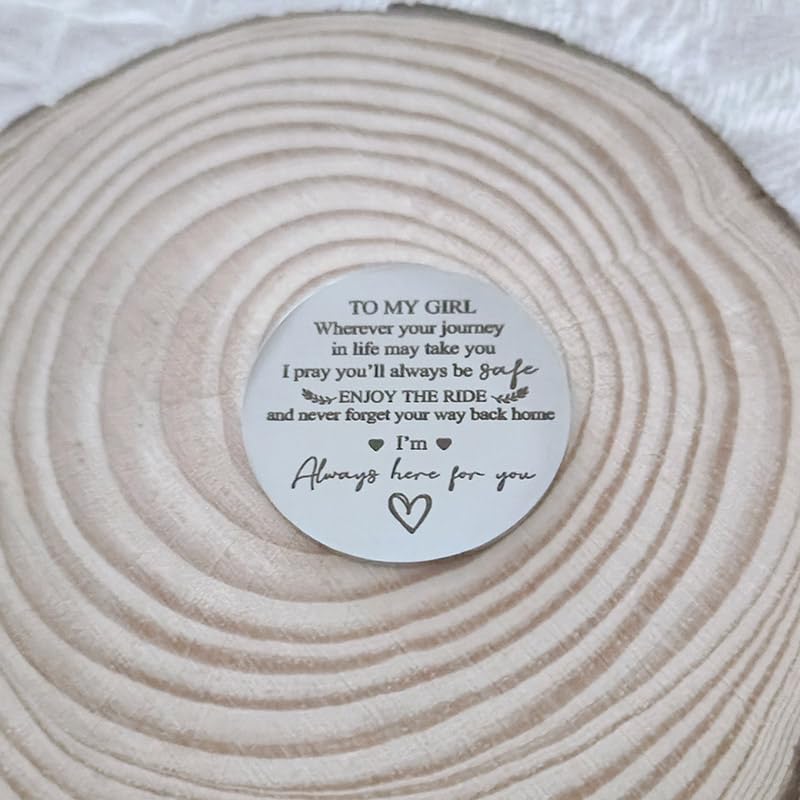 TO MY GIRL
Wherever your journey
in life may take you
I pray you'll always be safe
ENJOY THE RIDE
and never forget your way back home
I'm
Always here for you